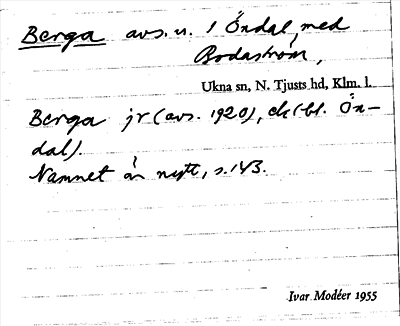 Berga avs. u. 1 Öndal, med
Bodaström,
Ukna sn, N. Tjusts hd, Klm. l.
Berga jr (avs. 1920), ek(bl. Ön-
dal).
Namnet är nytt, s. 143.
Ivar Modéer 1955